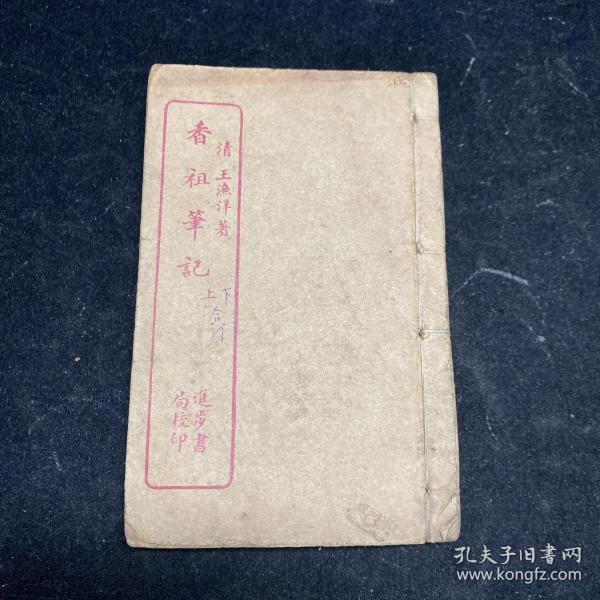 清 王漁洋著
香祖筆記
上
下
合订
進步書
局校印
孔夫子旧书网
www.kongfz.com